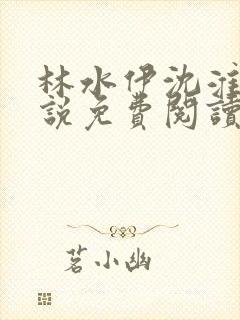 林水伊沈淮
說免費閱讀
茗小幽